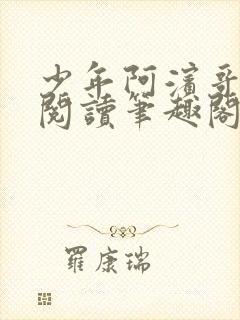 少年阿濱哥
閱讀筆趣閣
羅康瑞